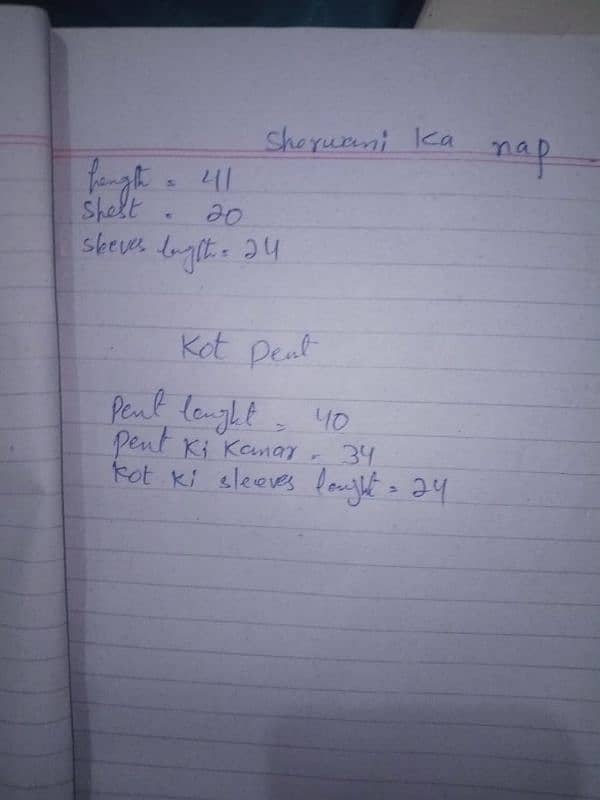 Sherwani ka nap
Length = 41
Shest = 20
Sleeves length = 24
Kot pent
Pent lenght = 40
Pent ki kamar = 34
Kot ki sleeves lenght = 24